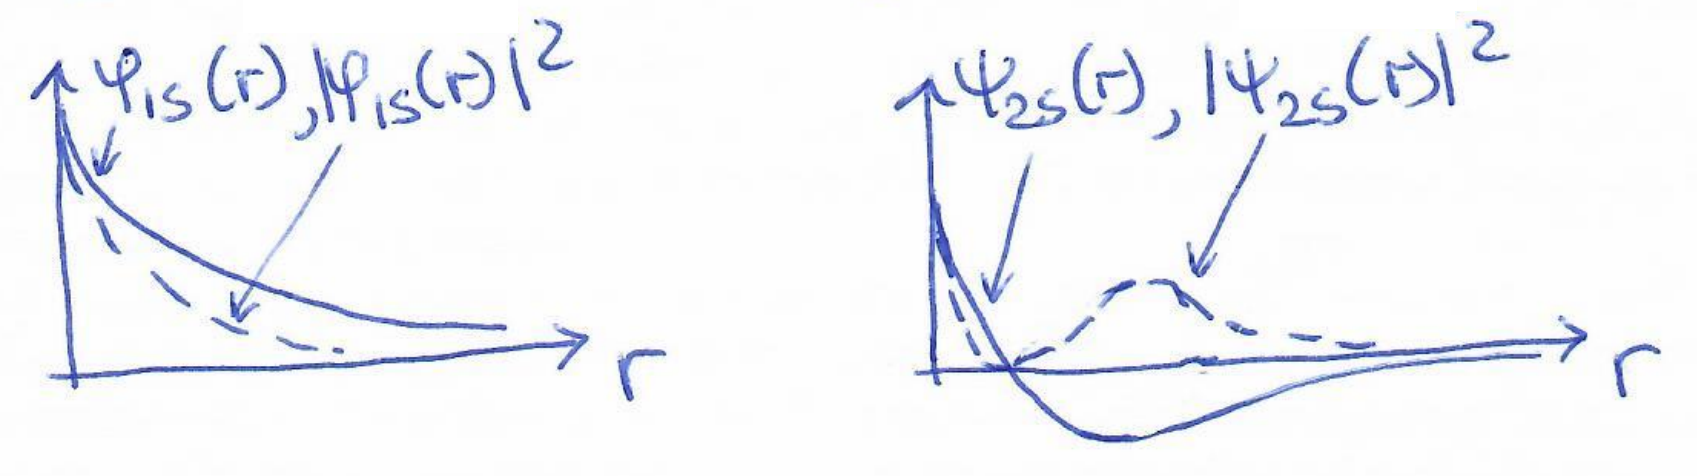 φ₁ₛ(r), |φ₁ₛ(r)|²
r
ψ₂ₛ(r), |ψ₂ₛ(r)|²
r